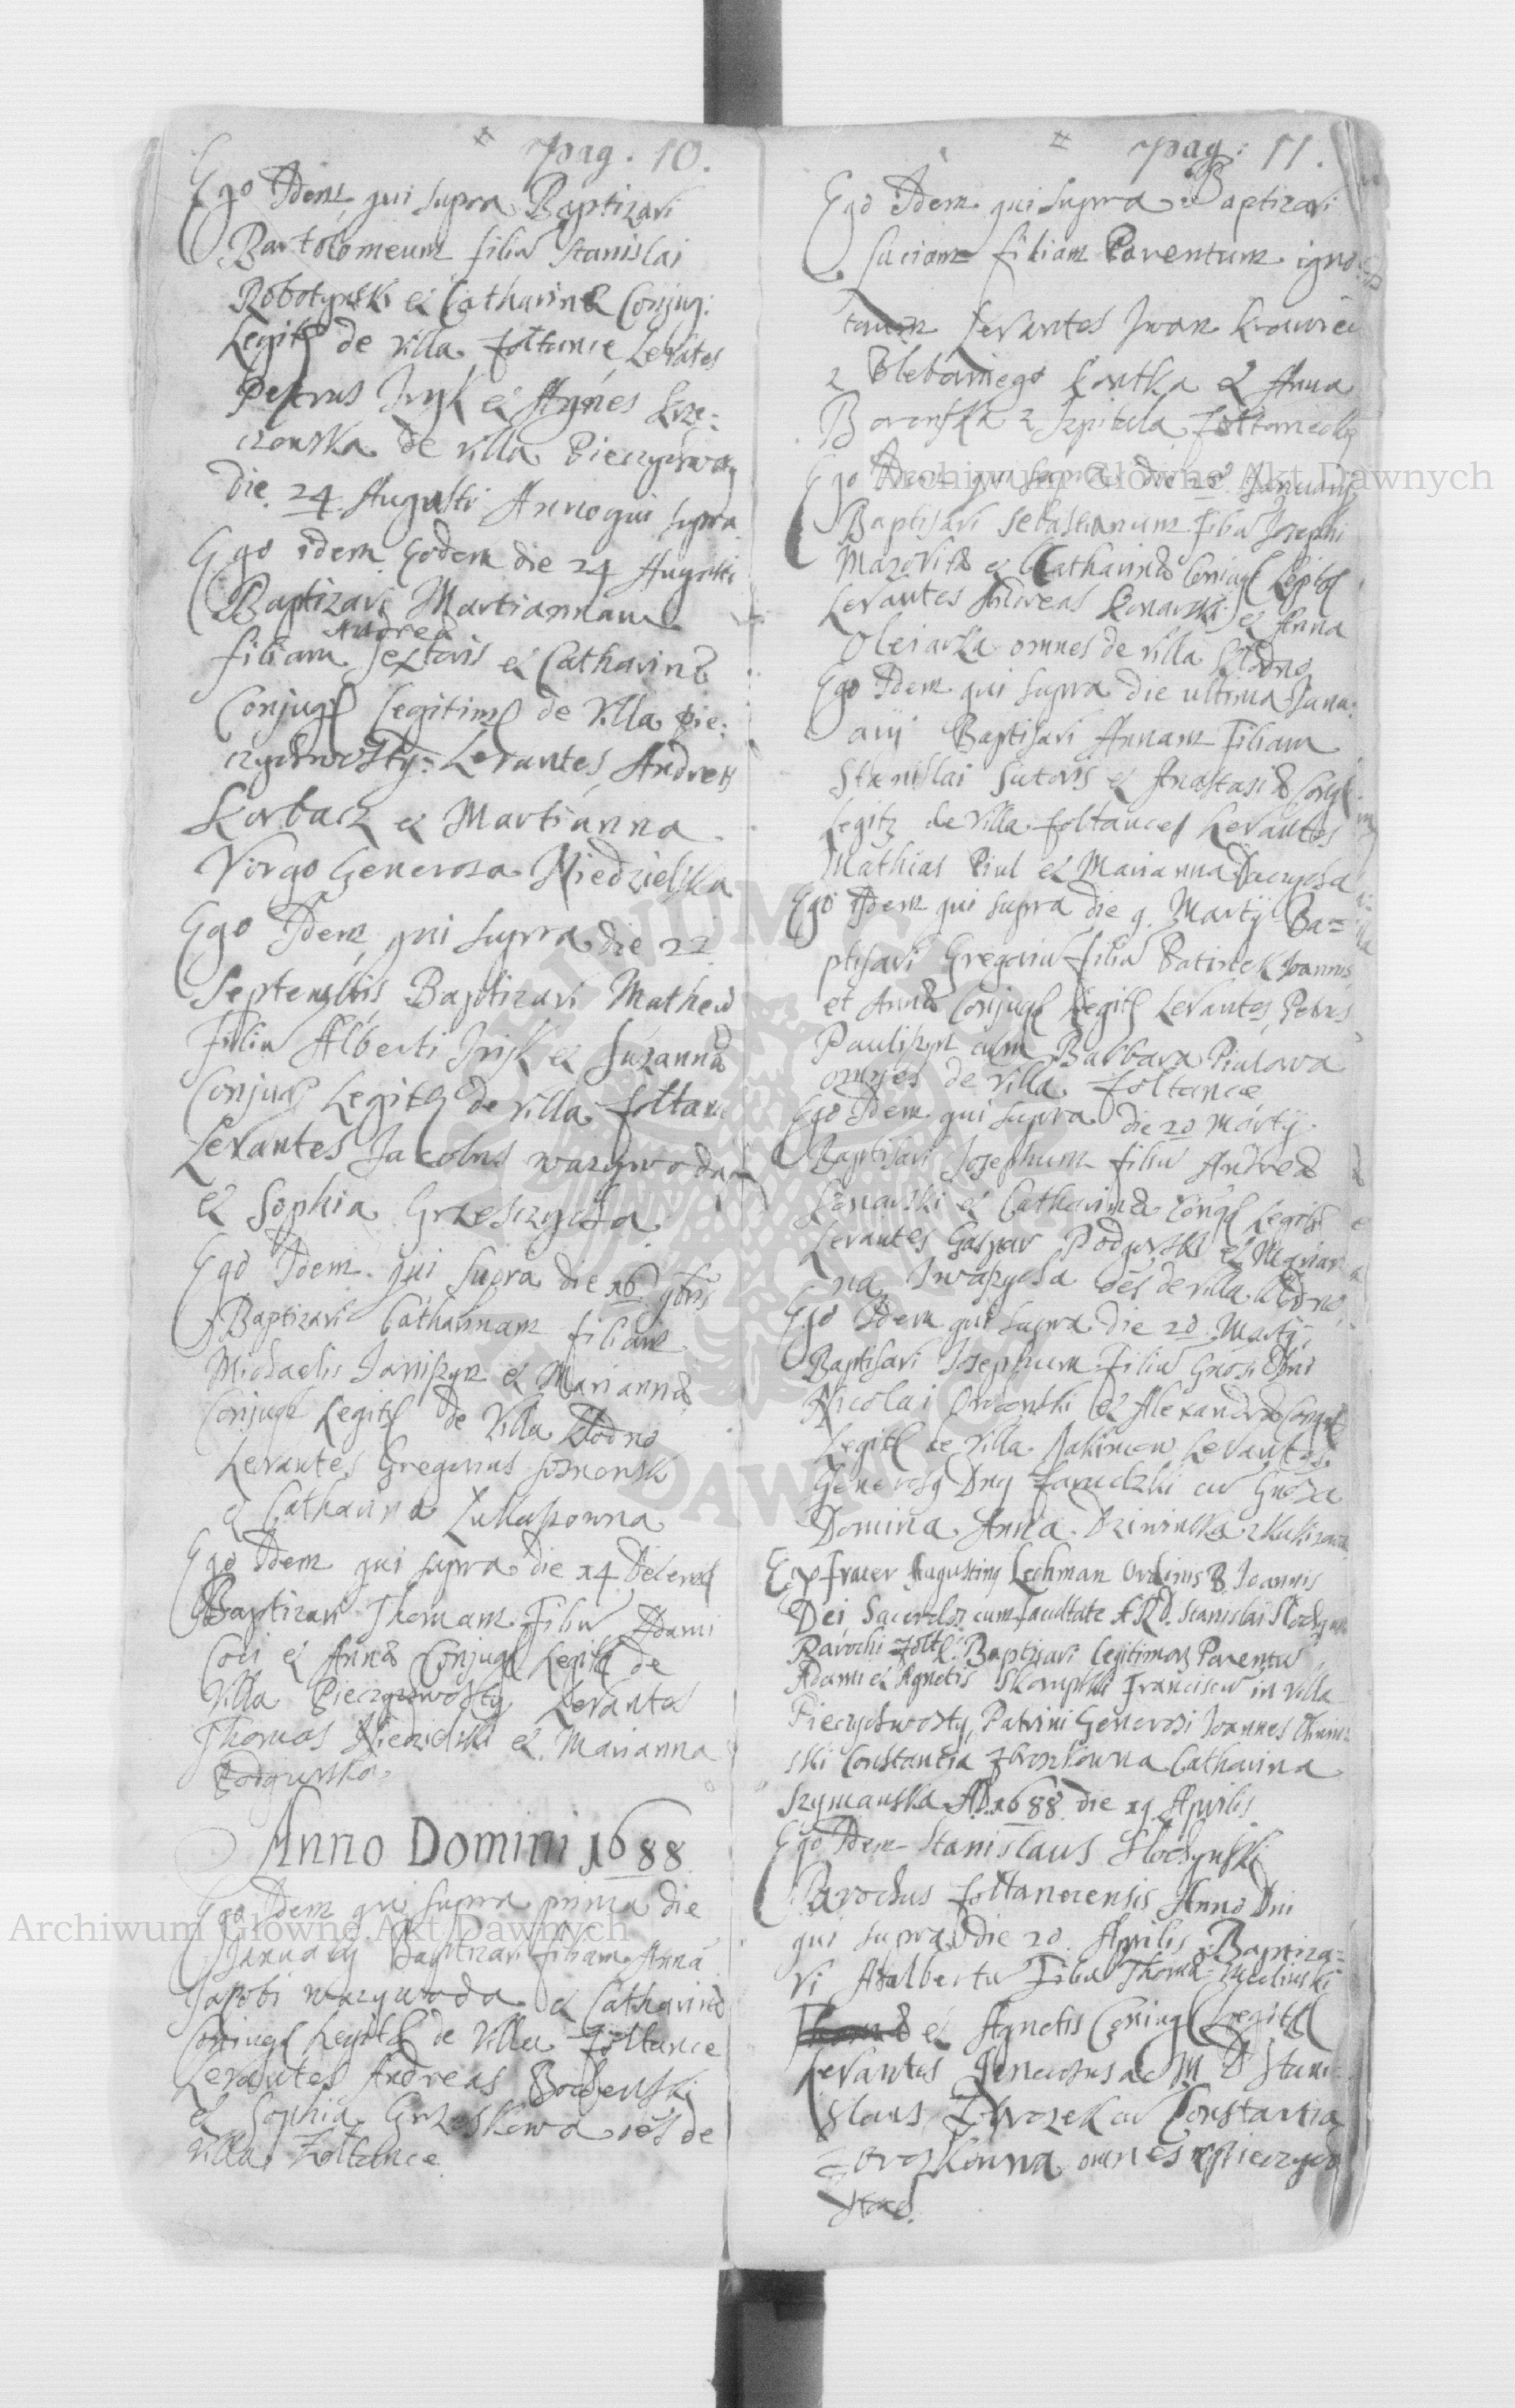 # pag. 10.
Ego Idem qui supra Baptizavi
Bartolomeum filiu Stanislai
Robotynski et Catharinæ Conjug:
Legit de villa Zoltance Levates
Petrus Iryk et Agnes Krze:
czonska de villa Pieczychwo
die 24 Augusti Anno qui supra
Ego idem Eodem die 24 Augusti
Baptizavi Martiannam
Andreæ
filiam Textoris et Catharinæ
Conjug Legitim de Villa Pie:
czychwosty: Levantes Andreas
Korbacz et Martianna
Virgo Generosa Niedzielska
Ego Idem qui supra die 22
Septembris Baptizavi Matheu
Filiu Alberti Iryk et Suzannæ
Conjug Legit de villa Zoltan
Levantes Jacobus warywoda
et Sophia Grzesczycha
Ego Idem qui supra die 16 9bris
Baptizavi Catharinam filiam
Michaelis Janiszyn et Mariannæ
Conjug Legit de Villa Klodno
Levantes Gregorius
et Catharina Lukaszowna
Ego Idem qui supra die 14 Decemb
Baptizavi Thomam Filiu Adami
Coci et Annæ Conjug Legit de
Villa Pieczychwosty Levantes
Thomas Niedzielski et Marianna
Podgurska
Anno Domini 1688
Ego Idem qui supra prima die
Januarij Baptizavi filiam Anna
Jacobi warywoda et Catharinæ
Coniug Legit de Villa Zoltance
Levantes Andreas Bochenski
et Sophia Grzeskowa oes de
villa Zoltance
# pag: 11.
Ego Idem qui supra Baptizavi
Luciam filiam Parentum igno
torum Levantes Iwan Krawiec
z Plebanniego Kontka et Anna
Boronska z Szpitala
Ego Idem qui supra die 20 Januarij
Baptisavi Sebastianum Filiu Josephi
Mazovitæ et Catharinæ Coniug Legit
Levantes Andreas Konarski et Anna
Oleiarka omnes de villa Klodno
Ego Idem qui supra die ultima Janu:
arij Baptisavi Annam Filiam
Stanislai Sutoris et Anastasiæ Conjug
Legit de Villa Zoltances Levantes
Mathias Piul et Marianna
Ego Idem qui supra die 9 Martij Ba=
ptisavi Gregoriu filiu Joannis
et Annæ Conjug Legit Levantes Petrus
Pauliszyn cum Barbara Piulowa
omnes de villa Zoltance
Ego Idem qui supra die 20 Martij
Baptisavi Josephum filiu Andreæ
Konarski et Catharinæ Cong Legit
Levantes Gaspar Podgorski et Marian
na Iwaszycha oes de villa Klodno
Ego Idem qui supra die 20 Martij
Baptisavi Josephum Filiu Gnosi Dni
Nicolai et Alexandræ Conjug
Legit de Villa Levantes
Generosq Dnq cu Gnosa
Domina Anna
Ego frater Augustinq Lechman Ordinis S. Joannis
Dei Sacerdos cum facultate A.R.D. Stanislai Klochynski
Parochi Zolt Baptizavi Legitimor Parentu
Adami et Agnetis Franciscu in Villa
Pieczychwosty, Patrini Generosi Joannes
ski Constantia Zborozkowna Catharina
Szymanska AD 1688 die 19 Aprilis
Ego Idem Stanislaus Klochynski
Parochus Zoltanecensis Anno Dni
qui supra die 20 Aprilis Baptiza=
vi Adalbertu Filiu Thomæ
et Agnetis Coniug Legit
Levantes Generosus ac M D Stani
slaus Zborozek cu Constantia
Zborozkowna omnes
Archiwum Główne Akt Dawnych
Archiwum Główne Akt Dawnych
ARCHIWUM GŁÓWNE AKT DAWNYCH